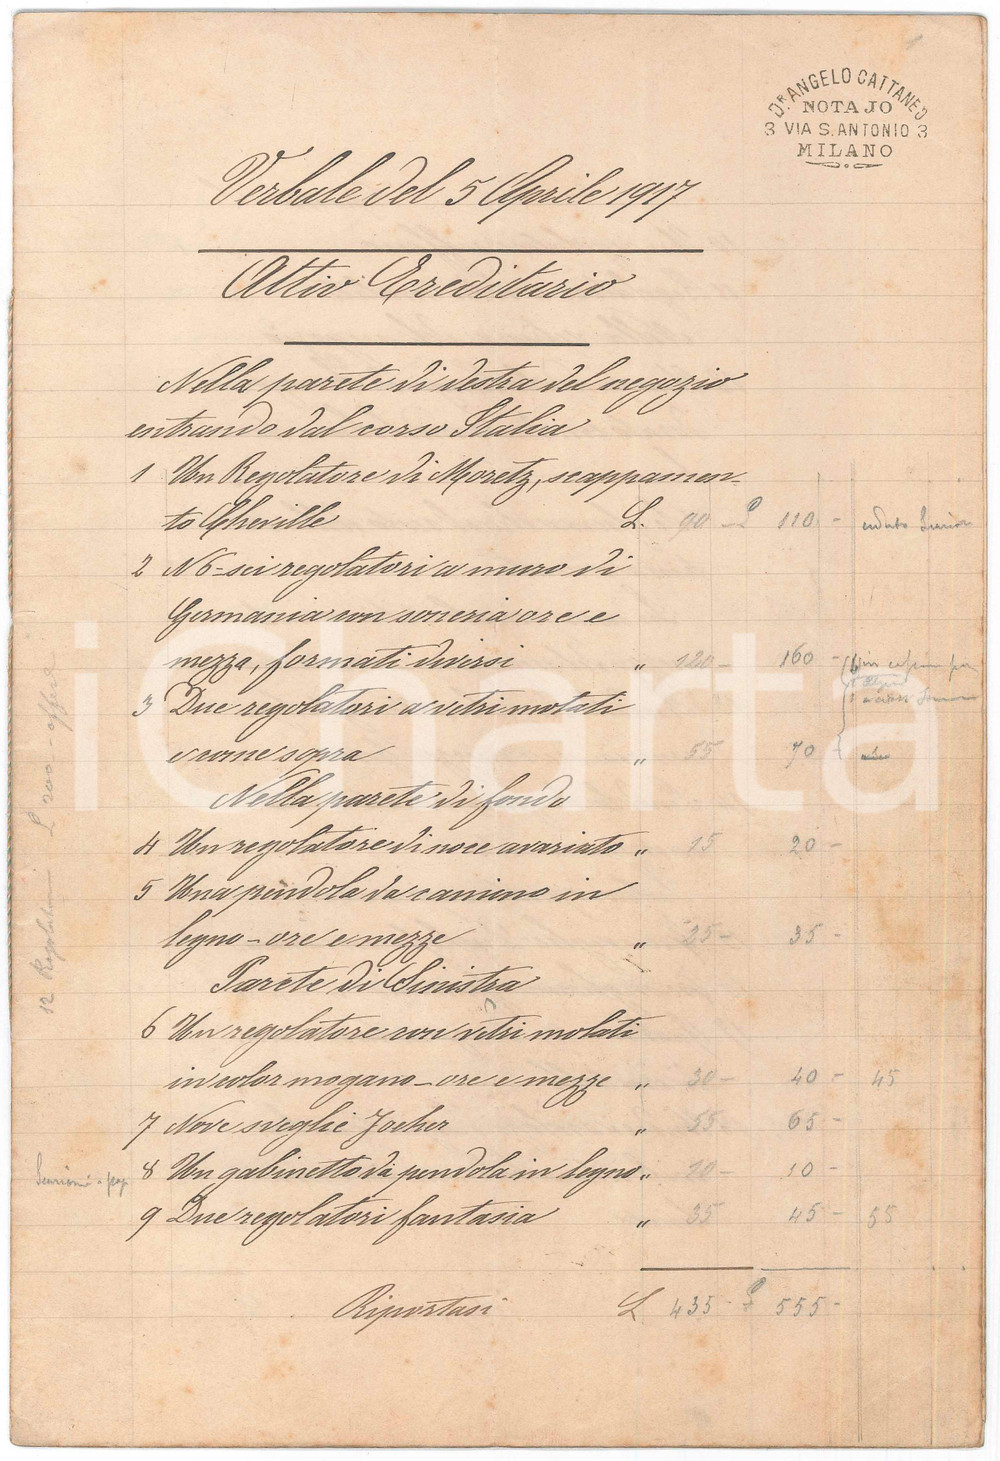 Dr. ANGELO CATTANEO
NOTAJO
3 VIA S. ANTONIO 3
MILANO
Verbale del 5 Aprile 1917
Attivo Ereditario
Nella parete di destra del negozio
entrando dal corso Italia
1 Un Regolatore di Moretz, scappamen-
to Cheville L. 90 - £ 110 -
2 N 6 - sei regolatori a muro di
Germania con soneria ore e
mezza, formati diversi " 120 - 160 -
3 Due regolatori a vetri molati
e come sopra " 55 70 -
Nella parete di fondo
4 Un regolatore di noce avariato " 15 20 -
5 Una pendola da camino in
legno - ore e mezze " 25 - 35 -
Parete di Sinistra
6 Un regolatore con vetri molati
in color mogano - ore e mezze " 30 - 40 - 45
7 Nove sveglie Jocker " 55 65 -
8 Un gabinetto di pendola in legno " 10 - 10 -
9 Due regolatori fantasia " 35 45 - 55
Riportasi L 435 - £ 555 -
12 Regolatori L 200 - offerte
iCharta